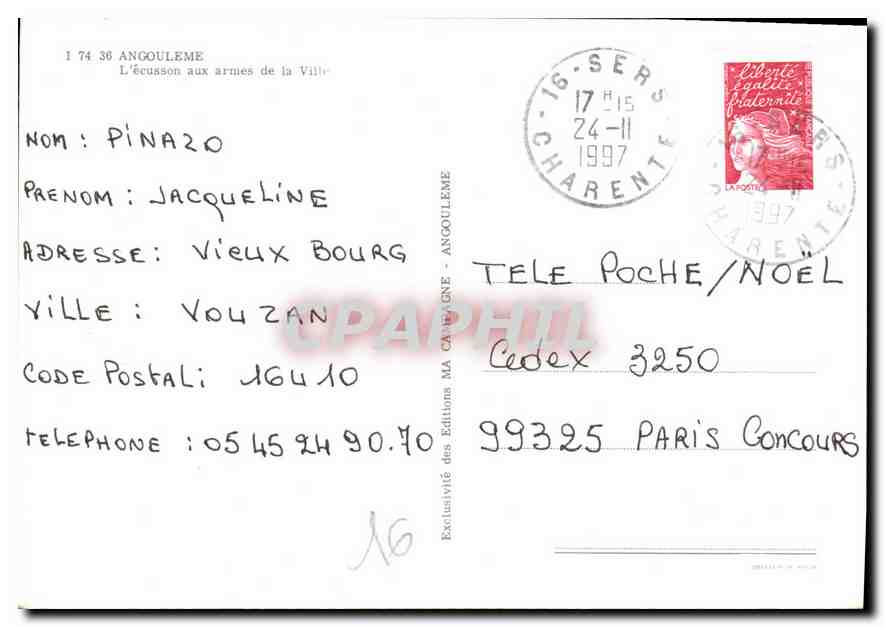 1 74 36 ANGOULEME
L'écusson aux armes de la Ville
NOM : PINAZO
PRENOM : JACQUELINE
ADRESSE : VIEUX BOURG
VILLE : VOUZAN
CODE POSTAL : 16410
TELEPHONE : 05 45 24 90.70
16
Exclusivité des Editions MA CAMPAGNE - ANGOULEME
16 - SERS
17 H 15
24-11
1997
CHARENTE
liberté
égalité
fraternité
LA POSTE
SERS
1997
CHARENTE
TELE POCHE/NOËL
Cedex 3250
99325 PARIS CONCOURS
CPAPHIL